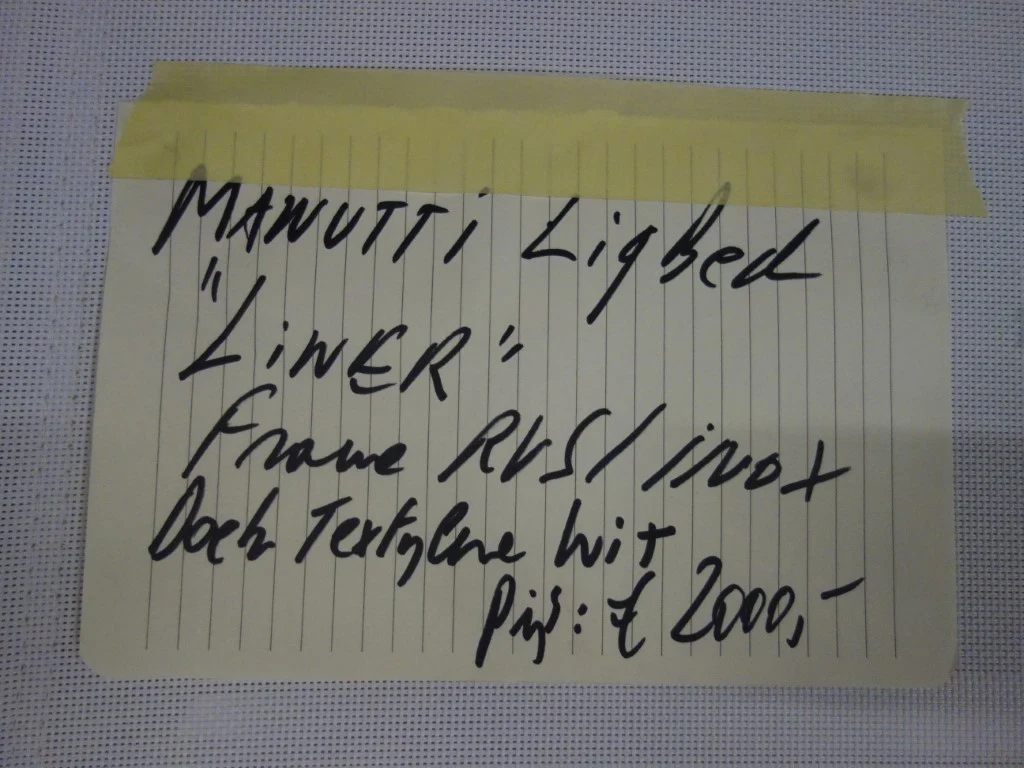 MANUTTi LigBed
"LiNER"
Frame RVS/inox
Doek Textylene wit
prijs: € 2000,-